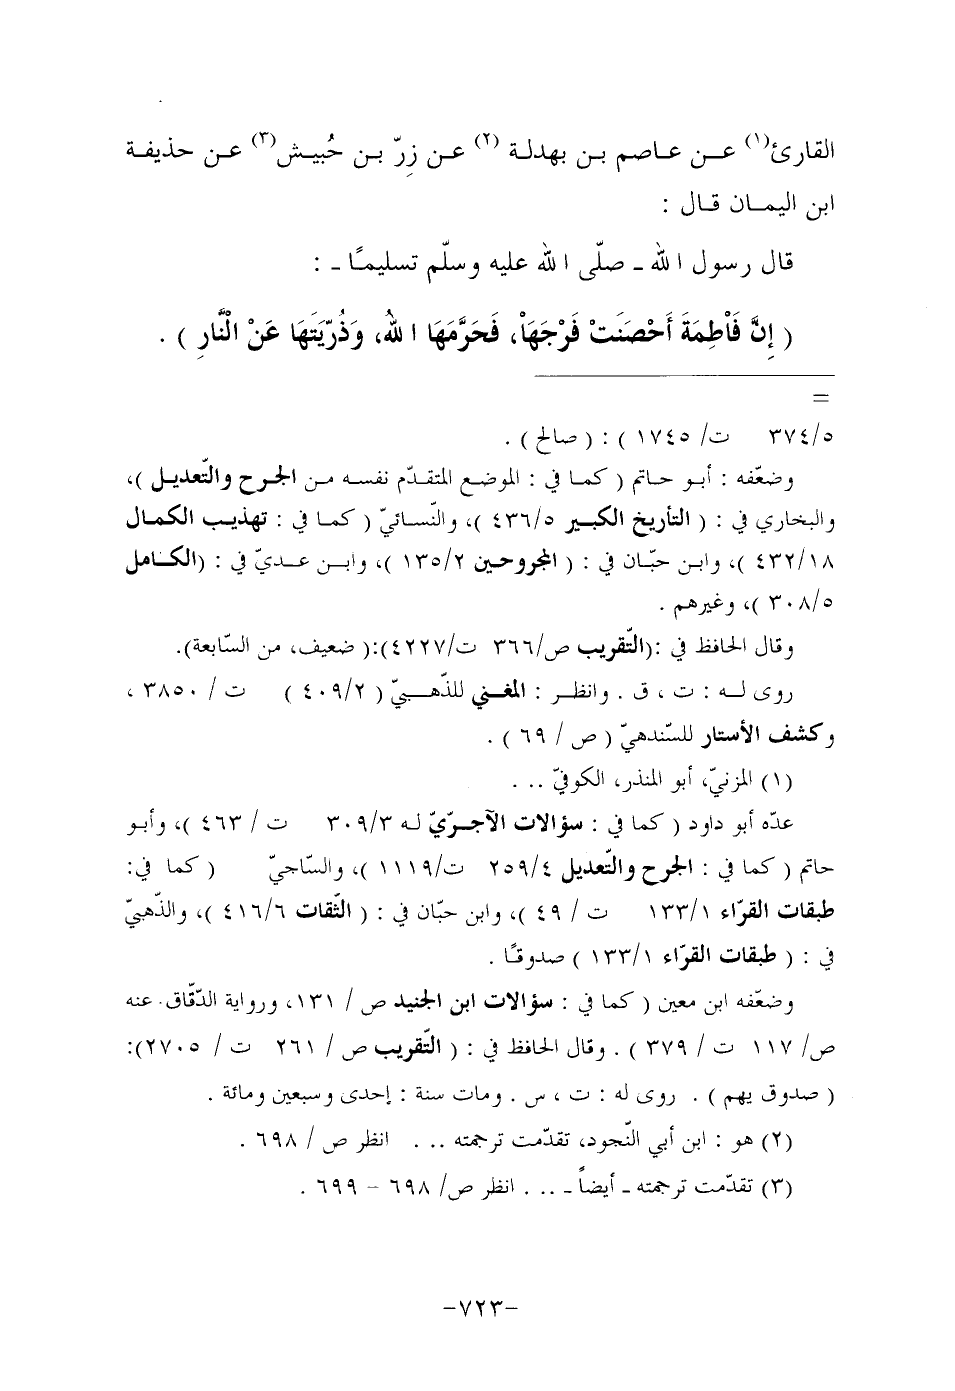 القارئ(١) عـن عـاصم بـن بهدلـة (٢) عـن زِرّ بـن حُبيـش(٣) عـن حذيفـة
ابن اليمـان قـال :
قال رسول الله ـ صلّى الله عليه وسلّم تسليمـًا ـ :
( إِنَّ فَاْطِمَةَ أَحْصَنَتْ فَرْجَهَاْ، فَحَرَّمَهَا اللهُ، وَذُرِّيَتَهَا عَنْ الْنَّارِ ) .
=
٣٧٤/٥ ت/ ١٧٤٥ ) : ( صالح ) .
وضعّفه : أبـو حـاتم ( كمـا في : الموضع المتقدّم نفسه مـن الجرح والتّعديـل )،
والبخاري في : ( التأريخ الكبيـر ٤٣٦/٥ )، والنّسائيّ ( كمـا في : تهذيب الكمال
٤٣٢/١٨ )، وابـن حبّـان في : ( المجروحين ١٣٥/٢ )، وابـن عـديّ في : (الكـامل
٣٠٨/٥ )، وغيرهم .
وقال الحافظ في :(التّقريب ص/٣٦٦ ت/٤٢٢٧):( ضعيف، من السّابعة).
روى لـه : ت ، ق . وانظـر : المغـني للذّهـبيّ ( ٤٠٩/٢ ) ت / ٣٨٥٠ ،
وكشف الأستار للسّندهيّ ( ص / ٦٩ ) .
(١) المزنيّ، أبو المنذر، الكوفيّ .. .
عدّه أبو داود ( كما في : سؤالات الآجـريّ له ٣٠٩/٣ ت / ٤٦٣ )، وأبـو
حاتم ( كما في : الجرح والتّعديل ٢٥٩/٤ ت/١١١٩ )، والسّاجيّ ( كما في:
طبقات القرّاء ١٣٣/١ ت / ٤٩ )، وابن حبّان في : ( الثّقات ٤١٦/٦ )، والذّهبيّ
في : ( طبقات القرّاء ١٣٣/١ ) صدوقـًا .
وضعّفه ابن معين ( كما في : سؤالات ابن الجنيد ص / ١٣١، ورواية الدّقّاق عنه
ص/ ١١٧ ت / ٣٧٩ ) . وقال الحافظ في : ( التّقريب ص / ٢٦١ ت / ٢٧٠٥):
( صدوق يهم ) . روى له : ت ، س . ومات سنة : إحدى وسبعين ومائة .
(٢) هو : ابن أبي النّجود، تقدّمت ترجمته .. . انظر ص / ٦٩٨ .
(٣) تقدّمت ترجمته ـ أيضاً ـ .. . انظر ص/ ٦٩٨ – ٦٩٩ .
-٧٢٣-